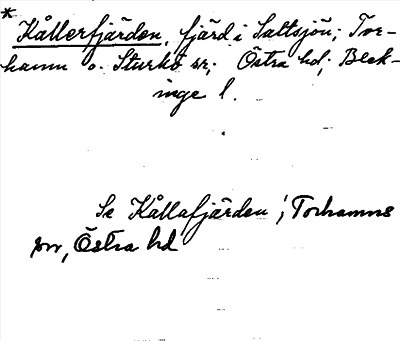 * Kållerfjärden, fjärd i Saltsjön; Tor-
hamn o. Sturkö sr; Östra hd; Blek-
inge l.
Se Kållafjärden i Torhamns
sn, Östra hd